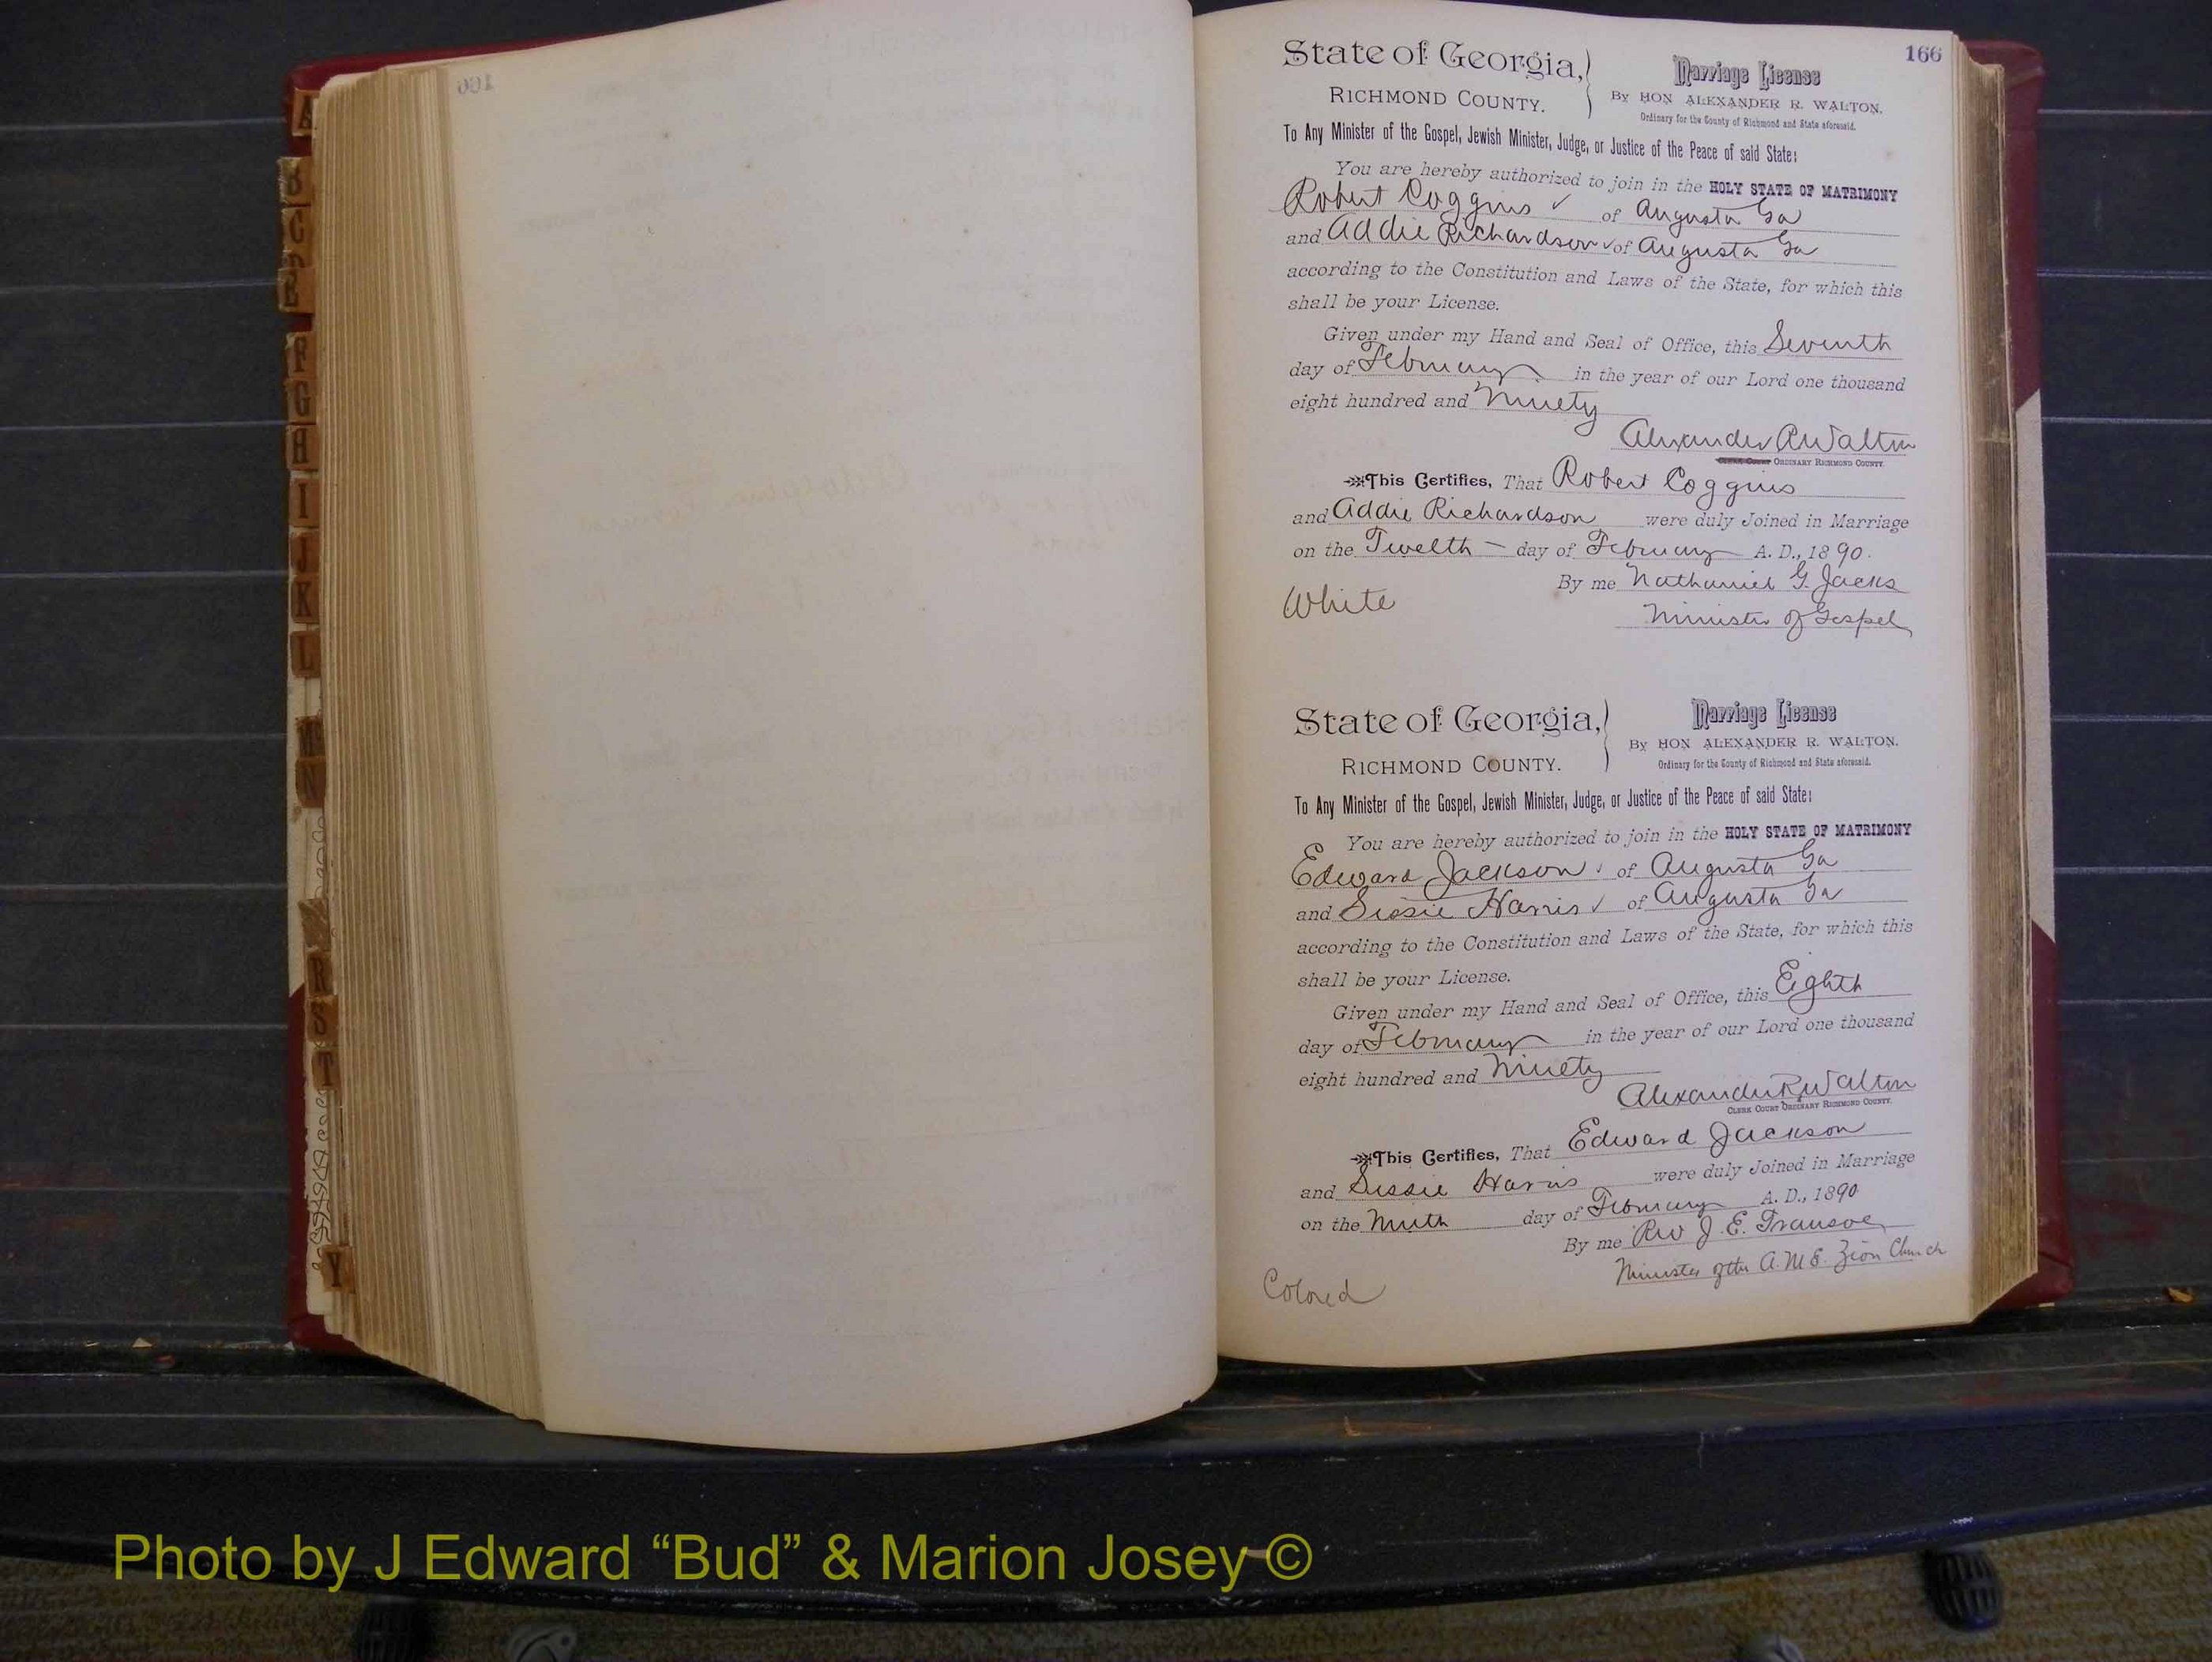 166
State of Georgia,
RICHMOND COUNTY.
Marriage License
By HON ALEXANDER R. WALTON.
Ordinary for the County of Richmond and State aforesaid.
To Any Minister of the Gospel, Jewish Minister, Judge, or Justice of the Peace of said State:
You are hereby authorized to join in the HOLY STATE OF MATRIMONY
Robert Coggins ✓ of Augusta Ga
and Addie Richardson ✓ of Augusta Ga
according to the Constitution and Laws of the State, for which this
shall be your License.
Given under my Hand and Seal of Office, this Seventh
day of February in the year of our Lord one thousand
eight hundred and Ninety
Alexander R Walton
CLERK COURT ORDINARY RICHMOND COUNTY.
This Certifies, That Robert Coggins
and Addie Richardson were duly Joined in Marriage
on the Twelth – day of February A. D., 1890.
By me Nathaniel G. Jacks
White
Minister of Gospel
State of Georgia,
RICHMOND COUNTY.
Marriage License
By HON ALEXANDER R. WALTON.
Ordinary for the County of Richmond and State aforesaid.
To Any Minister of the Gospel, Jewish Minister, Judge, or Justice of the Peace of said State:
You are hereby authorized to join in the HOLY STATE OF MATRIMONY
Edward Jackson ✓ of Augusta Ga
and Sissie Harris ✓ of Augusta Ga
according to the Constitution and Laws of the State, for which this
shall be your License.
Given under my Hand and Seal of Office, this Eighth
day of February in the year of our Lord one thousand
eight hundred and Ninety
Alexander R Walton
CLERK COURT ORDINARY RICHMOND COUNTY.
This Certifies, That Edward Jackson
and Sissie Harris were duly Joined in Marriage
on the Ninth day of February A. D., 1890
By me Rev J. E.
Minister of the A. M. E. Zion Church
Colored
A
B
C
E
F
G
H
I
J
K
L
N
R
S
T
Y
Photo by J Edward “Bud” & Marion Josey ©